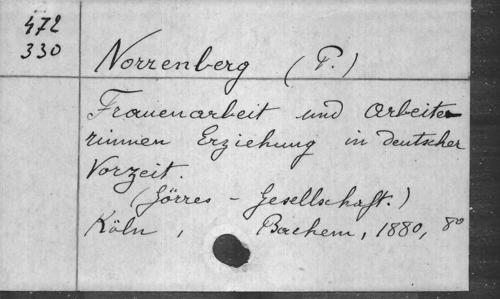 472
330
Norrenberg (P.)
Frauenarbeit und Arbeite
rinnen Erziehung in deutscher
Vorzeit.
(Görres - Gesellschaft.)
Köln, Bachem, 1880, 8º